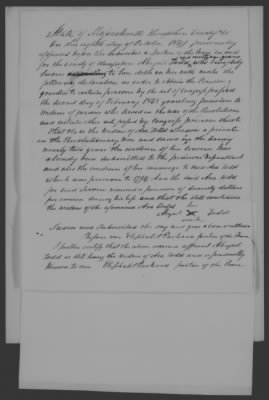 State of Massachusetts Hampshire County SS
On this eighth day of October 1849 personally
appeared before the subscriber a Justice of the Peace in and
for the County of Hampshire Abigail Todd, who being duly
sworn according to law doth on her oath make the
following declaration in order to obtain the Pension
granted to certain persons by the act of Congress passed
the second day of February 1848 granting pension to
widows of persons who served in the war of the Revolution
and certain other acts passed by Congress previous thereto
That she is the widow of Asa Todd a private
in the Revolutionary War and served in the Army
nearly two years the evidence of his service has
already been submitted to the Pension Department
and also the evidence of her marriage to said Asa Todd
which was previous to 1794 And the said Asa did
for said service receive a pension of
per annum during his life and that she still continues
the widow of the aforesaid Asa Todd her
Abigail X Todd
mark
Sworn and Subscribed the day and year above written
Before me Eliphalet Packard Justice of the Peace
I further certify that the above named affiant Abigail
Todd is still living the widow of Asa Todd and is personally
known to me Eliphalet Packard Justice of the Peace